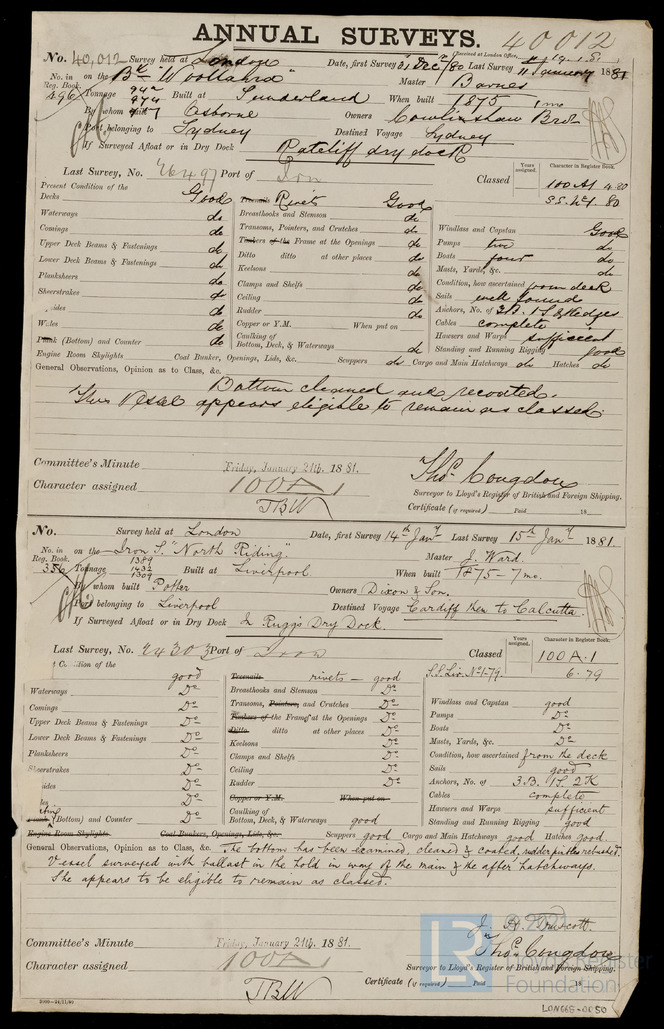 ANNUAL SURVEYS.
40012
Received at London Office,
No. 40,012 Survey held at London Date, first Survey Dec 80 Last Survey January 1881
No. in Reg. Book. on the Bk "Woollahra" Master Barnes
496 Tonnage 942 974 Built at Sunderland When built 1875 1 mo
By whom built Osborne Owners Cowlinshaw Bros
Port belonging to Sydney Destined Voyage Sydney
If Surveyed Afloat or in Dry Dock Ratcliff dry dock
Years assigned. Character in Register Book.
Last Survey, No. 26497 Port of Lon Classed 100 A1 4.80
S.S. No 1 80
Present Condition of the
Decks Good
Waterways do
Comings do
Upper Deck Beams & Fastenings do
Lower Deck Beams & Fastenings do
Planksheers do
Sheerstrakes do
ides do
Wales do
Plank (Bottom) and Counter do
Treenails Rivets Good
Breasthooks and Stemson do
Transoms, Pointers, and Crutches do
Timbers of the Frame at the Openings do
Ditto ditto at other places do
Keelsons do
Clamps and Shelfs do
Ceiling do
Rudder do
Copper or Y.M. When put on
Caulking of Bottom, Deck, & Waterways do
Windlass and Capstan Good
Pumps two do
Boats four do
Masts, Yards, &c. do
Condition, how ascertained from deck
Sails well found
Anchors, No. of 3B. 1S. 2 Kedges
Cables complete
Hawsers and Warps sufficient
Standing and Running Rigging good
Engine Room Skylights Coal Bunker, Openings, Lids, &c. Scuppers do Cargo and Main Hatchways do Hatches do
General Observations, Opinion as to Class, &c.
Bottom cleaned and recoated.
This Vessel appears eligible to remain as classed.
Committee's Minute Friday, January 21st, 1881.
Character assigned 100A1
TBW
Thos. Congdon
Surveyor to Lloyd's Register of British and Foreign Shipping.
Certificate (if required) Paid 18
No. Survey held at London Date, first Survey 14th Jany Last Survey 15th Jany 1881.
No. in Reg. Book. on the Iron S. "North Riding". Master J. Ward.
356 Tonnage 1389 1432 1309 Built at Liverpool When built 1875 - 7 mo.
By whom built Potter Owners Dixon & Son.
Port belonging to Liverpool Destined Voyage Cardiff then to Calcutta.
If Surveyed Afloat or in Dry Dock In Rugg's Dry Dock.
Years assigned. Character in Register Book.
Last Survey, No. 24303 Port of Iron Classed 100 A.1
S.S. Liv. No 1-79. 6.79
Condition of the
good
Waterways Do
Comings Do
Upper Deck Beams & Fastenings Do
Lower Deck Beams & Fastenings Do
Planksheers Do
Sheerstrakes Do
ides Do
les Do
(Bottom) and Counter Do
Treenails rivets - good
Breasthooks and Stemson Do
Transoms, Pointers, and Crutches Do
Timbers of the Frame at the Openings Do
Ditto ditto at other places Do
Keelsons Do
Clamps and Shelfs Do
Ceiling Do
Rudder Do
Copper or Y.M. When put on
Caulking of Bottom, Deck, & Waterways good
Windlass and Capstan good
Pumps Do
Boats Do
Masts, Yards, &c. Do
Condition, how ascertained from the deck
Sails good
Anchors, No. of 3.B. 1S. 2K
Cables complete
Hawsers and Warps sufficient
Standing and Running Rigging good
Engine Room Skylights Coal Bunkers, Openings, Lids, &c. Scuppers good Cargo and Main Hatchways good Hatches good.
General Observations, Opinion as to Class, &c. The bottom has been examined, cleaned & coated, rudder pintles rebushed.
Vessel surveyed with ballast in the hold in way of the main & the after hatchways.
She appears to be eligible to remain as classed.
J. H. Truscott
Thos. Congdon
Committee's Minute Friday, January 21st, 1881.
Character assigned 100A1
TBW
Surveyor to Lloyd's Register of British and Foreign Shipping.
Certificate (if required) Paid 18
© 2021
LR
Lloyd's Register
Foundation
LON665-0050